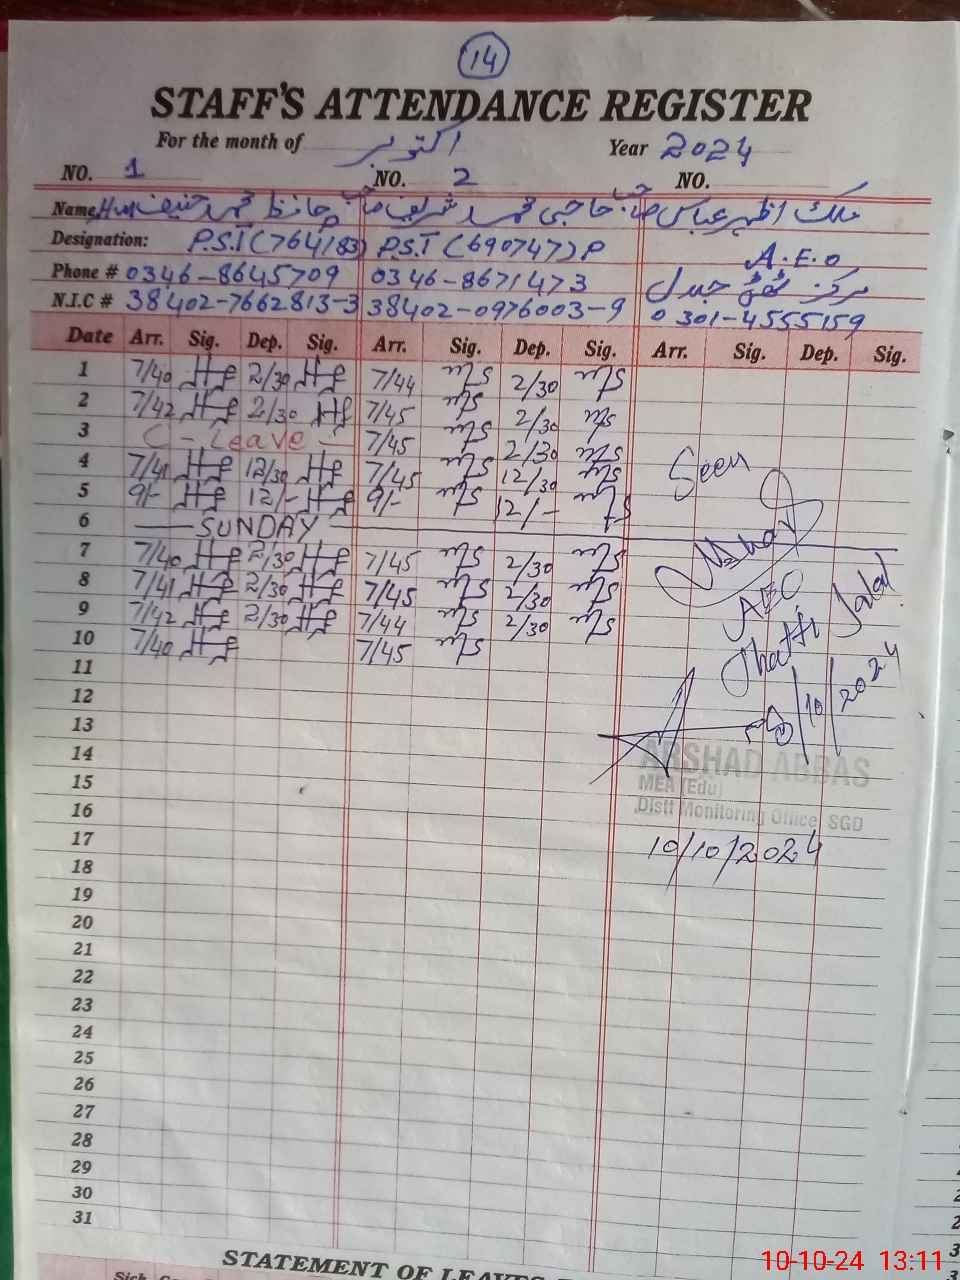 14
STAFF'S ATTENDANCE REGISTER
For the month of اکتوبر Year 2024
NO. 1 NO. 2 NO.
Name حافظ محمد حنیف صاحب حاجی محمد شریف صاحب ملک اظہر عباس
Designation: P.S.T (764183) P.S.T (690747) P A.E.O
Phone # 0346-8645709 0346-8671473 مرکز
N.I.C # 38402-7662813-3 38402-0976003-9 0301-4555159
Date Arr. Sig. Dep. Sig. Arr. Sig. Dep. Sig. Arr. Sig. Dep. Sig.
1 7/40 Hf 2/30 Hf 7/44 m/s 2/30 m/s
2 7/42 Hf 2/30 Hf 7/45 m/s 2/30 m/s
3 C-Leave 7/45 m/s 2/30 m/s
4 7/41 Hf 12/30 Hf 7/45 m/s 12/30 m/s Seen
5 9/- Hf 12/- Hf 9/- m/s 12/- m/s
6 SUNDAY
7 7/40 Hf 2/30 Hf 7/45 m/s 2/30 m/s
8 7/41 Hf 2/30 Hf 7/45 m/s 2/30 m/s AEO
9 7/42 Hf 2/30 Hf 7/44 m/s 2/30 m/s Jalal
10 7/40 Hf 7/45 m/s
11
12 /10/2024
13
14 ARSHAD ABBAS
15 MEA (Edu)
16 Distt Monitoring Office, SGD
17 10/10/2024
18
19
20
21
22
23
24
25
26
27
28
29
30
31
STATEMENT OF LEAVES
10-10-24 13:11